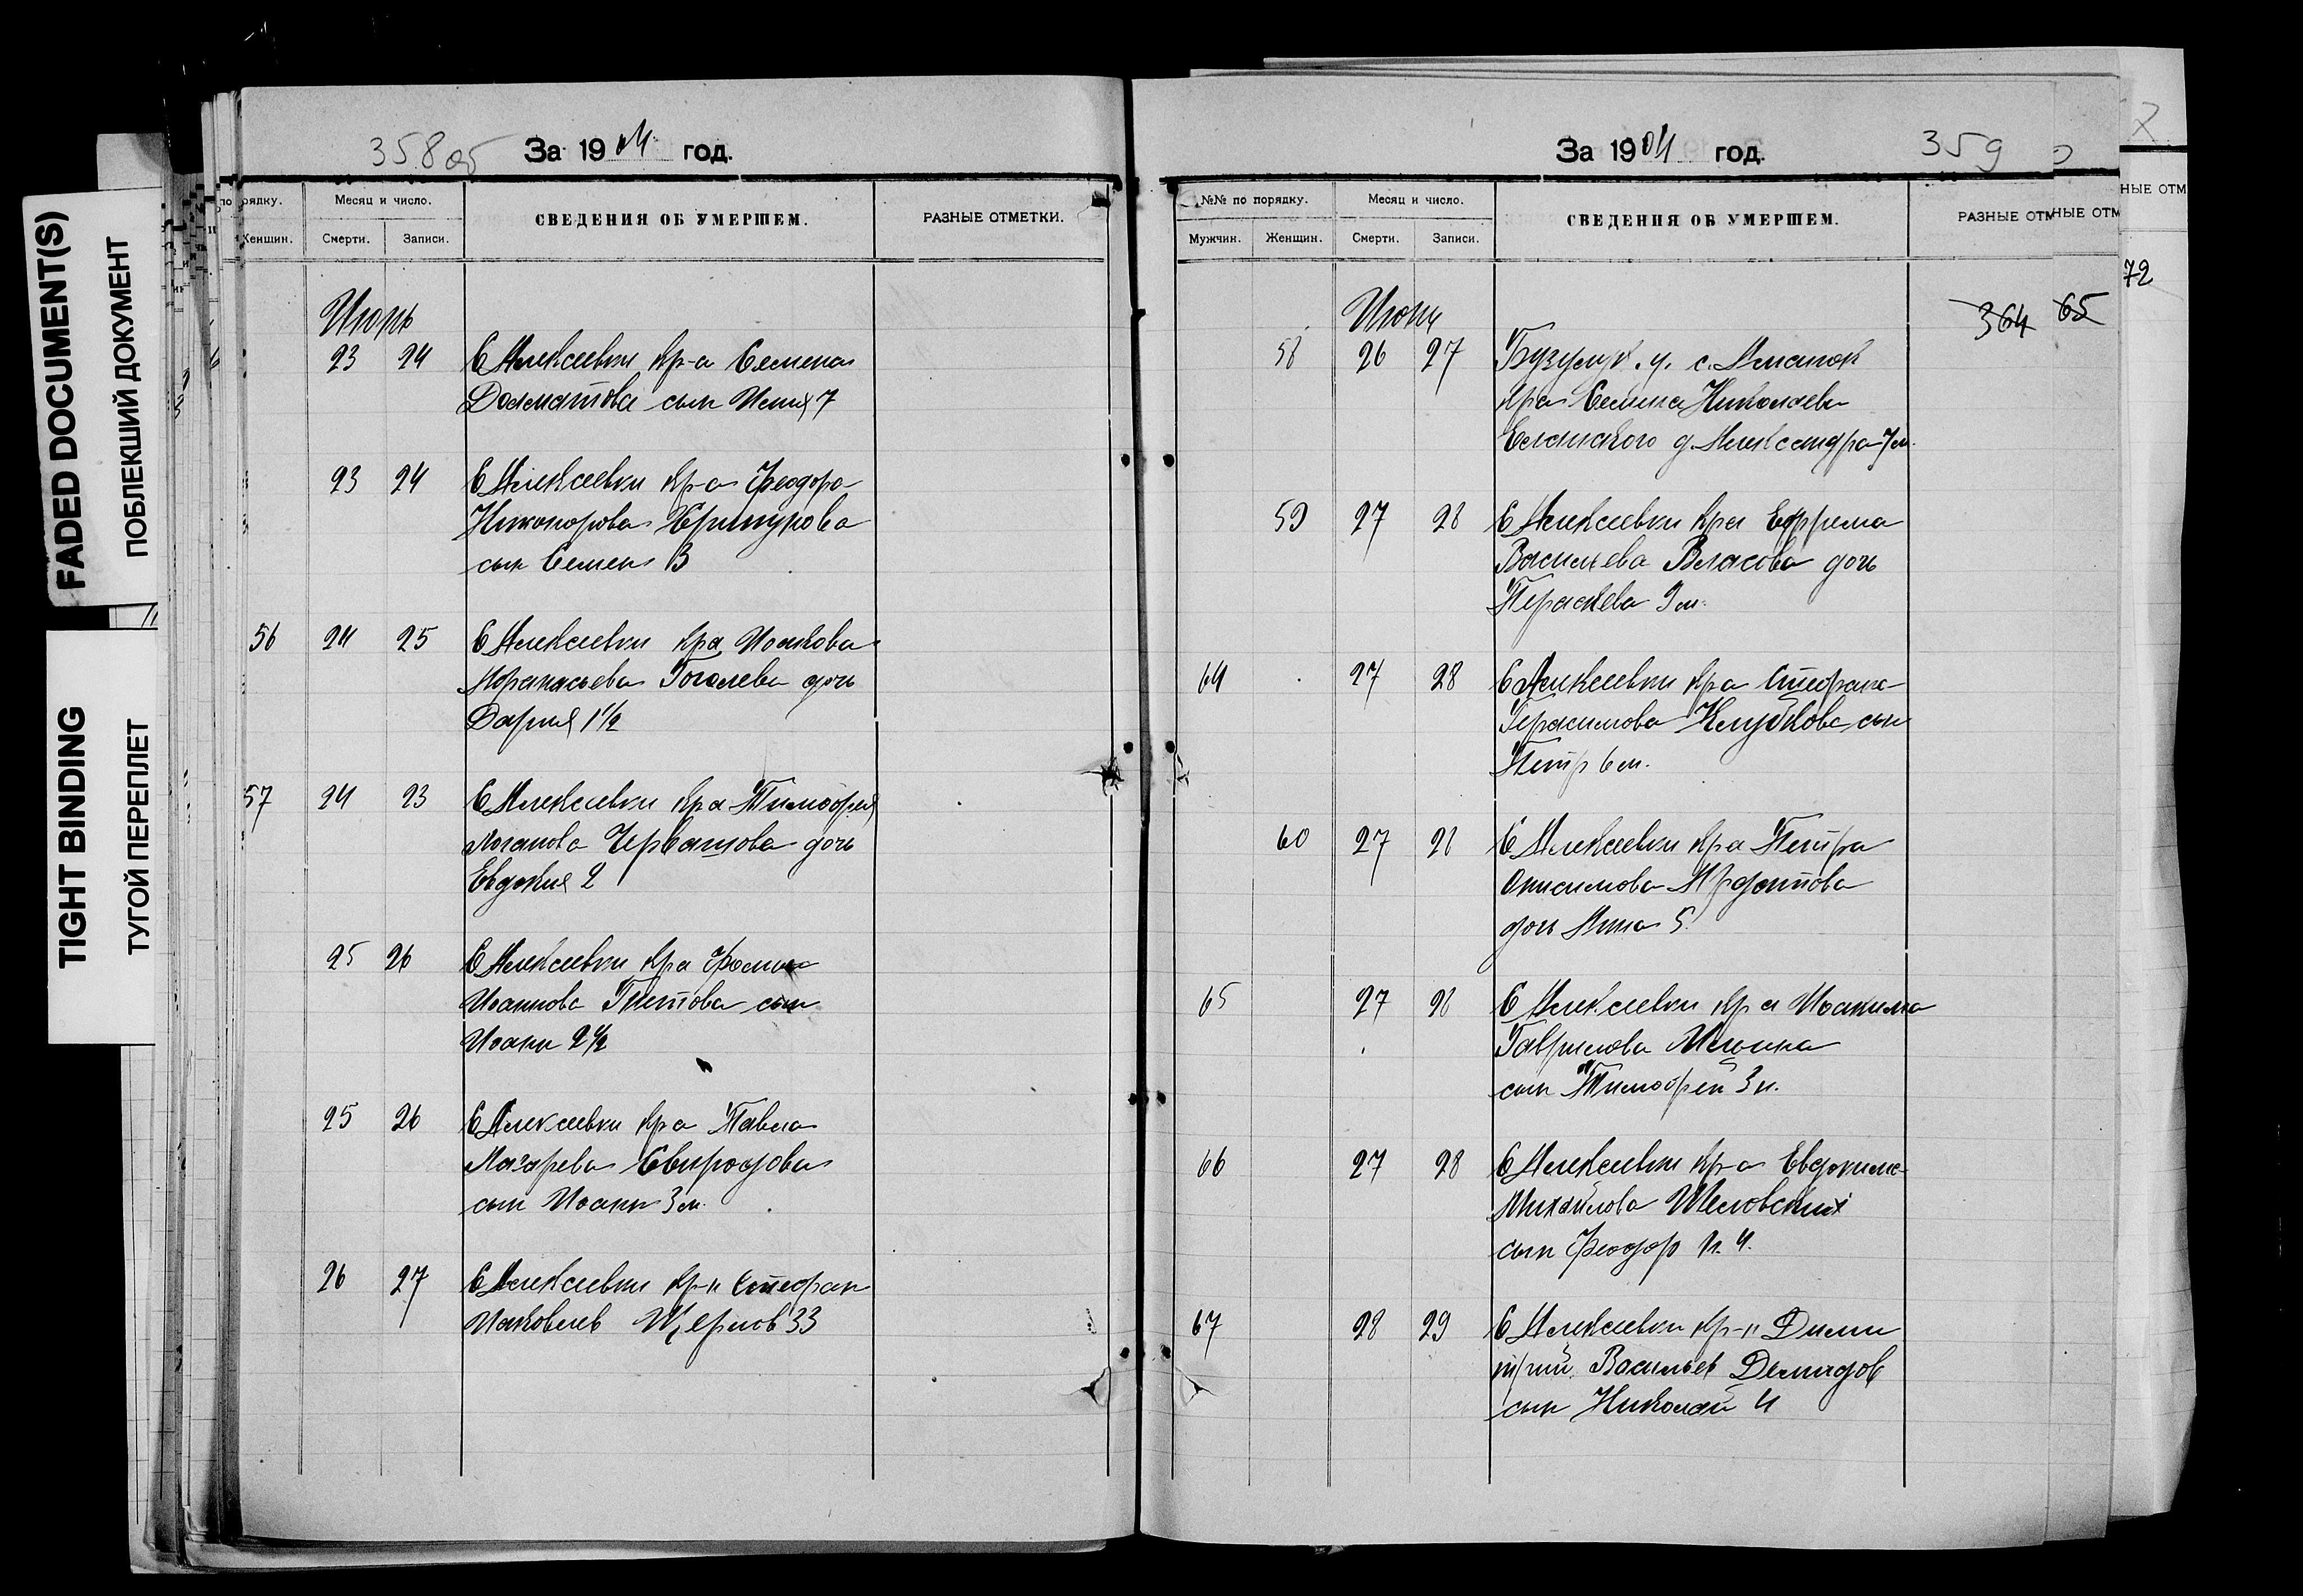 FADED DOCUMENT(S)
ПОБЛЕКШИЙ ДОКУМЕНТ
TIGHT BINDING
ТУГОЙ ПЕРЕПЛЕТ
358об
За 1904 год.
рядку.
Месяц и число.
СВЕДЕНИЯ ОБ УМЕРШЕМ.
РАЗНЫЕ ОТМЕТКИ.
Женщин.
Смерти.
Записи.
Июнь
23 24 С Алексеевки кр-а Семена
Долматова сын Илия 7
23 24 С Алексеевки кр-а Феодора
Никонорова
сын Семен 3
56 24 25 С Алексеевки кр-а Иоакова
Афанасьева Гоголева дочь
Дария 1 1/2
57 24 23 С Алексеевки кр-а Тимофея
дочь
Евдокия 2
25 26 С Алексеевки кр-а Фомы
Иоаннова Титова сын
Иоанн 2 1/2
25 26 С Алексеевки кр-а Павла
Лазарева
сын Иоанн 3 м.
26 27 С Алексеевки кр-н Стефан
Иаковлев 33
За 1904 год.
359
№№ по порядку.
Месяц и число.
СВЕДЕНИЯ ОБ УМЕРШЕМ.
РАЗНЫЕ ОТМ
НЫЕ ОТМ
НЫЕ ОТМ
Мужчин.
Женщин.
Смерти.
Записи.
72
364
65
Июнь
58 26 27 Бузулук. у. с.
кр-а Семена Николаева
д. Александра 7 м.
59 27 28 С Алексеевки кр-а Ефрема
Васильева Власова дочь
Параскева 9 м.
64 27 28 С Алексеевки кр-а Стефана
Герасимова Клубкова сын
Петр 6 м.
60 27 28 С Алексеевки кр-а Петра
Онисимова Ардатова
дочь Анна 5
65 27 28 С Алексеевки кр-а Иоакима
Гаврилова
сын Тимофей 3 н.
66 27 28 С Алексеевки кр-а Евдокима
Михайлова Шеловских
сын Феодор
67 28 29 С Алексеевки кр-н Дими
трий Васильев Демидов
сын Николай 4